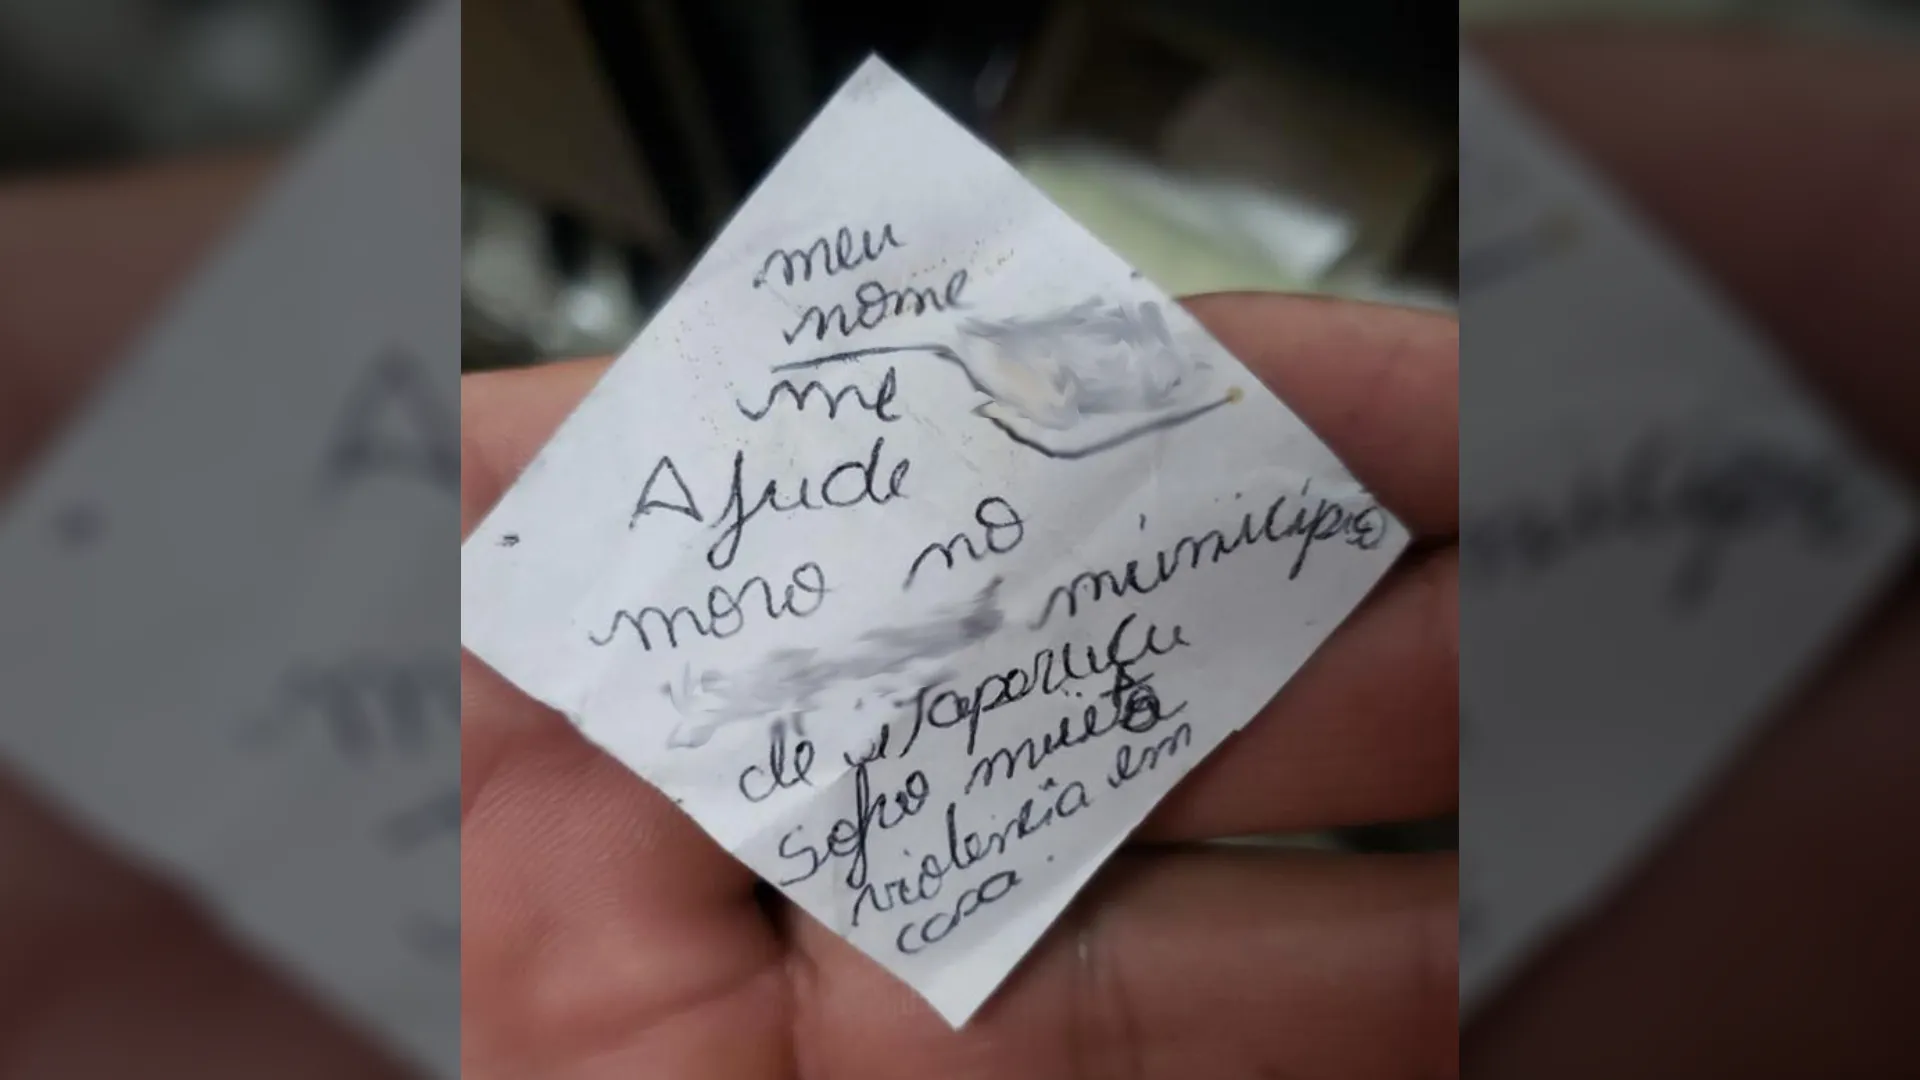 meu
nome
me
Ajude
moro no
município
de itaparica
sofro muito
violencia em
casa.